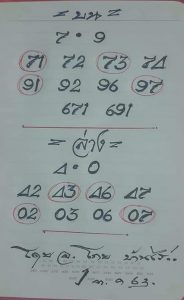 = บน =
7 • 9
71 72 73 74
91 92 96 97
671 691
= ล่าง =
4 • 0
42 43 46 47
02 03 06 07
โดย อ. โถม บ้านไร่..
1 ก.ค 63.